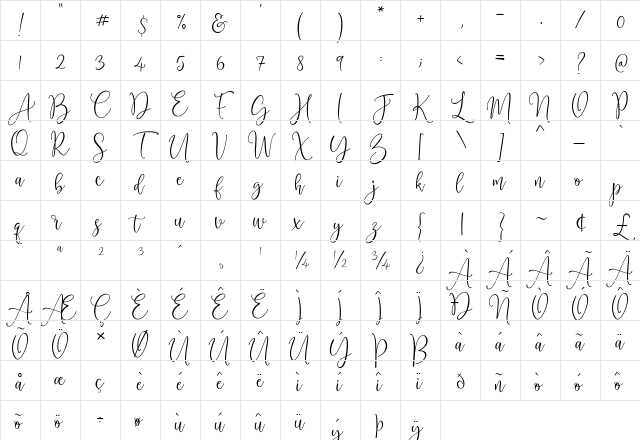 ! " # $ % & ' ( ) * + , - . / 0
1 2 3 4 5 6 7 8 9 : ; < = > ? @
A B C D E F G H I J K L M N O P
Q R S T U V W X Y Z [ \ ] ^ _ `
a b c d e f g h i j k l m n o p
q r s t u v w x y z { | } ~ ¢ £
ª 2 3 ´ ¸ 1 ¼ ½ ¾ ¿ À Á Â Ã Ä
Å Æ Ç È É Ê Ë Ì Í Î Ï Ð Ñ Ò Ó Ô
Õ Ö × Ø Ù Ú Û Ü Ý Þ ß à á â ã ä
å æ ç è é ê ë ì í î ï ð ñ ò ó ô
õ ö ÷ ø ù ú û ü ý þ ÿ